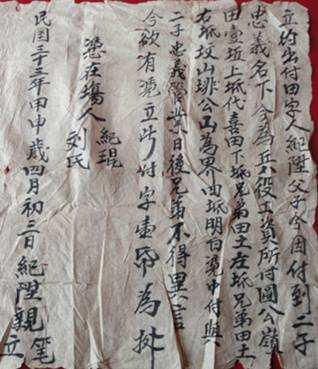 立約出付田字人紀陞父子今因付到二子
忠義名下今為兵役工資所付圓公嶺
田壹坵上坻代喜田下坻兄弟田土左坻兄弟田土
右坻坟山排公山為界四坻明白憑中付與
二子忠義管業日後兄弟不得異言
今欲有憑立此付字壹帋為據
憑在場人 紀琨 刘氏
民國三十三年甲申歲四月初三日紀陞親筆立